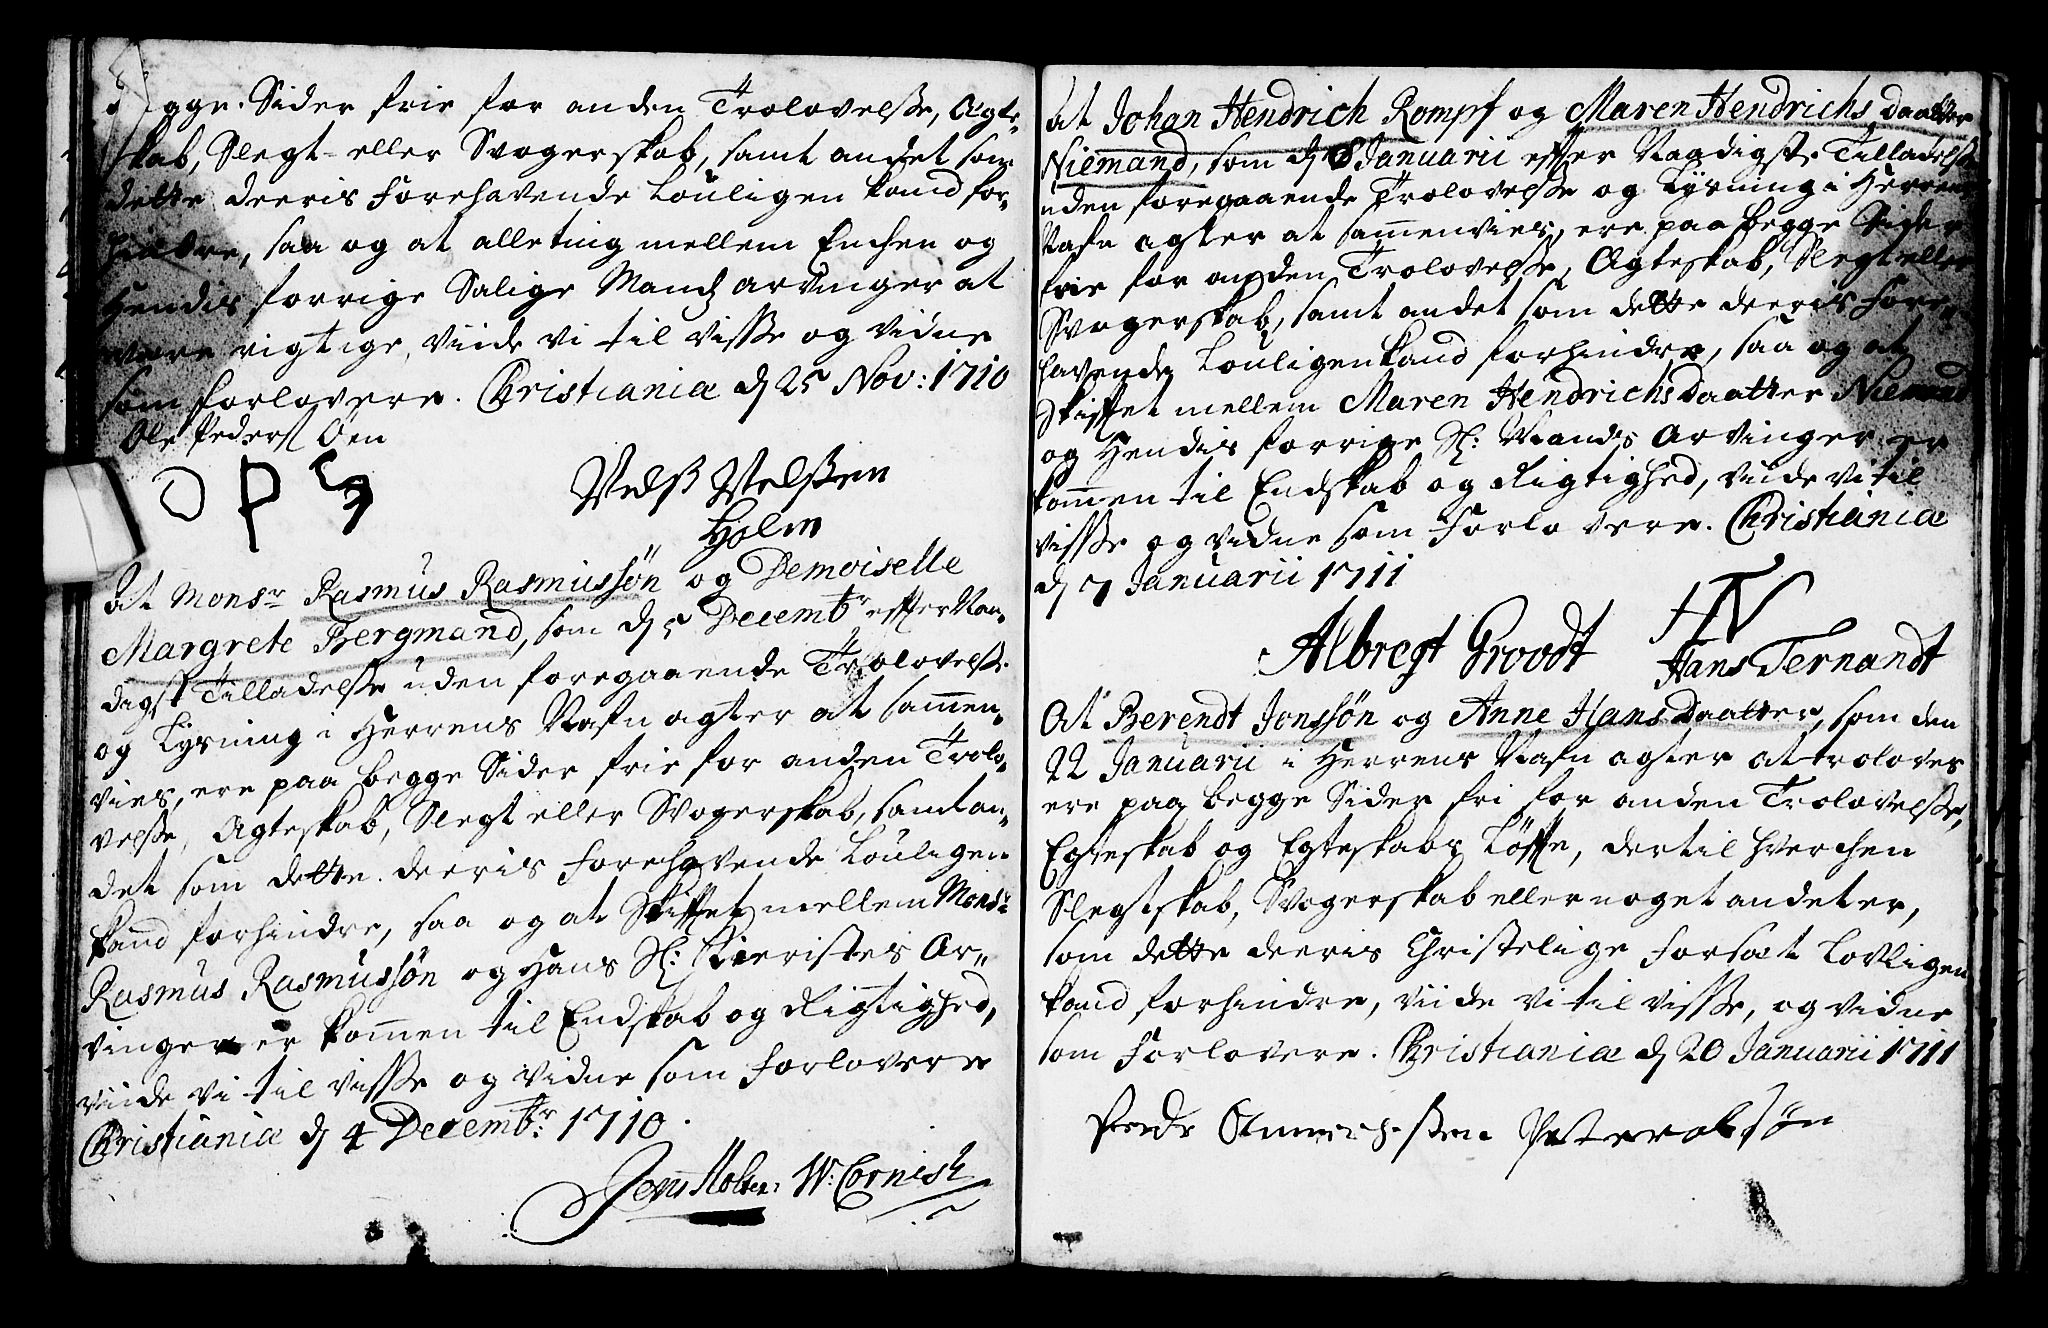 begge Sider frie for anden Trolovelsse, Ægte-
skab, Slegt- eller Svogerskab, samt andet som
dette deeris Forehavende Louligen kand for-
hindre, saa og at alleting mellem Enchen og
Hendis forrige Salige Mands arvinger at
være rigtige, viide vi til visse og vidne
som forlovere. Christiania d 25 Nov: 1710
Ole Peders Øen
O P S
Niels Nielssen
Holm
At Monsr Rasmus Rasmussøn og Demoiselle
Margrete Bergmand, som d 5 Decembr effter Naa-
digst Tilladelsse uden foregaaende Trolovelsse
og Lysning i Herrens Nafn agter at sam̄en-
vies, ere paa begge Sider frie for anden Trolo-
velsse, Ægteskab, Slegt eller Svogerskab, samt an-
det som dette deeris Forehavende Louligen
kand forhindre, saa og at Skifftet mellem Monsr
Rasmus Rasmussøn og Hans Sl: Kieristes Ar-
vinger er kom̄en til Endskab og Rigtighed,
viide vi til visse og vidne som Forlovere
Christiania d 4 Decembr: 1710.
Jens Holter. W: Cornish
At Johan Hendrich Rompf og Maren Hendrichs daatter
Niemand, som d 8 Januarii effter Naadigste Tilladelsse
uden foregaaende Trolovelsse og Lysning i Herrens
Nafn agter at sam̄envies, ere paa begge Sider
frie for anden Trolovelsse, Ægteskab, Slegt eller
Svogerskab, samt andet som dette deeris Fore-
havende Louligen kand forhindre, saa og at
Skifftet mellem Maren Hendrichs daatter Niemand
og Hendis forrige Sl: Mands Arvinger er
kom̄en til Endskab og Rigtighed, viide vi til
visse og vidne som Forlovere. Christiania
d 7 Januarii 1711
HTN
Albregt Groodt Hans Ternandt
At Berendt Jonssøn og Anne Hans daatter, som den
22 Januarii i Herrens Nafn agter at troloves
ere paa begge Sider fri for anden Trolovelsse,
Egteskab og Egteskabs Løffte, dertil hverchen
Slegtskab, Svogerskab eller noget andet er,
som dette deeris Christelige Forsæt Lovligen
kand forhindre, viide vi til visse, og vidne
som Forlovere. Christiania d 20 Januarii 1711